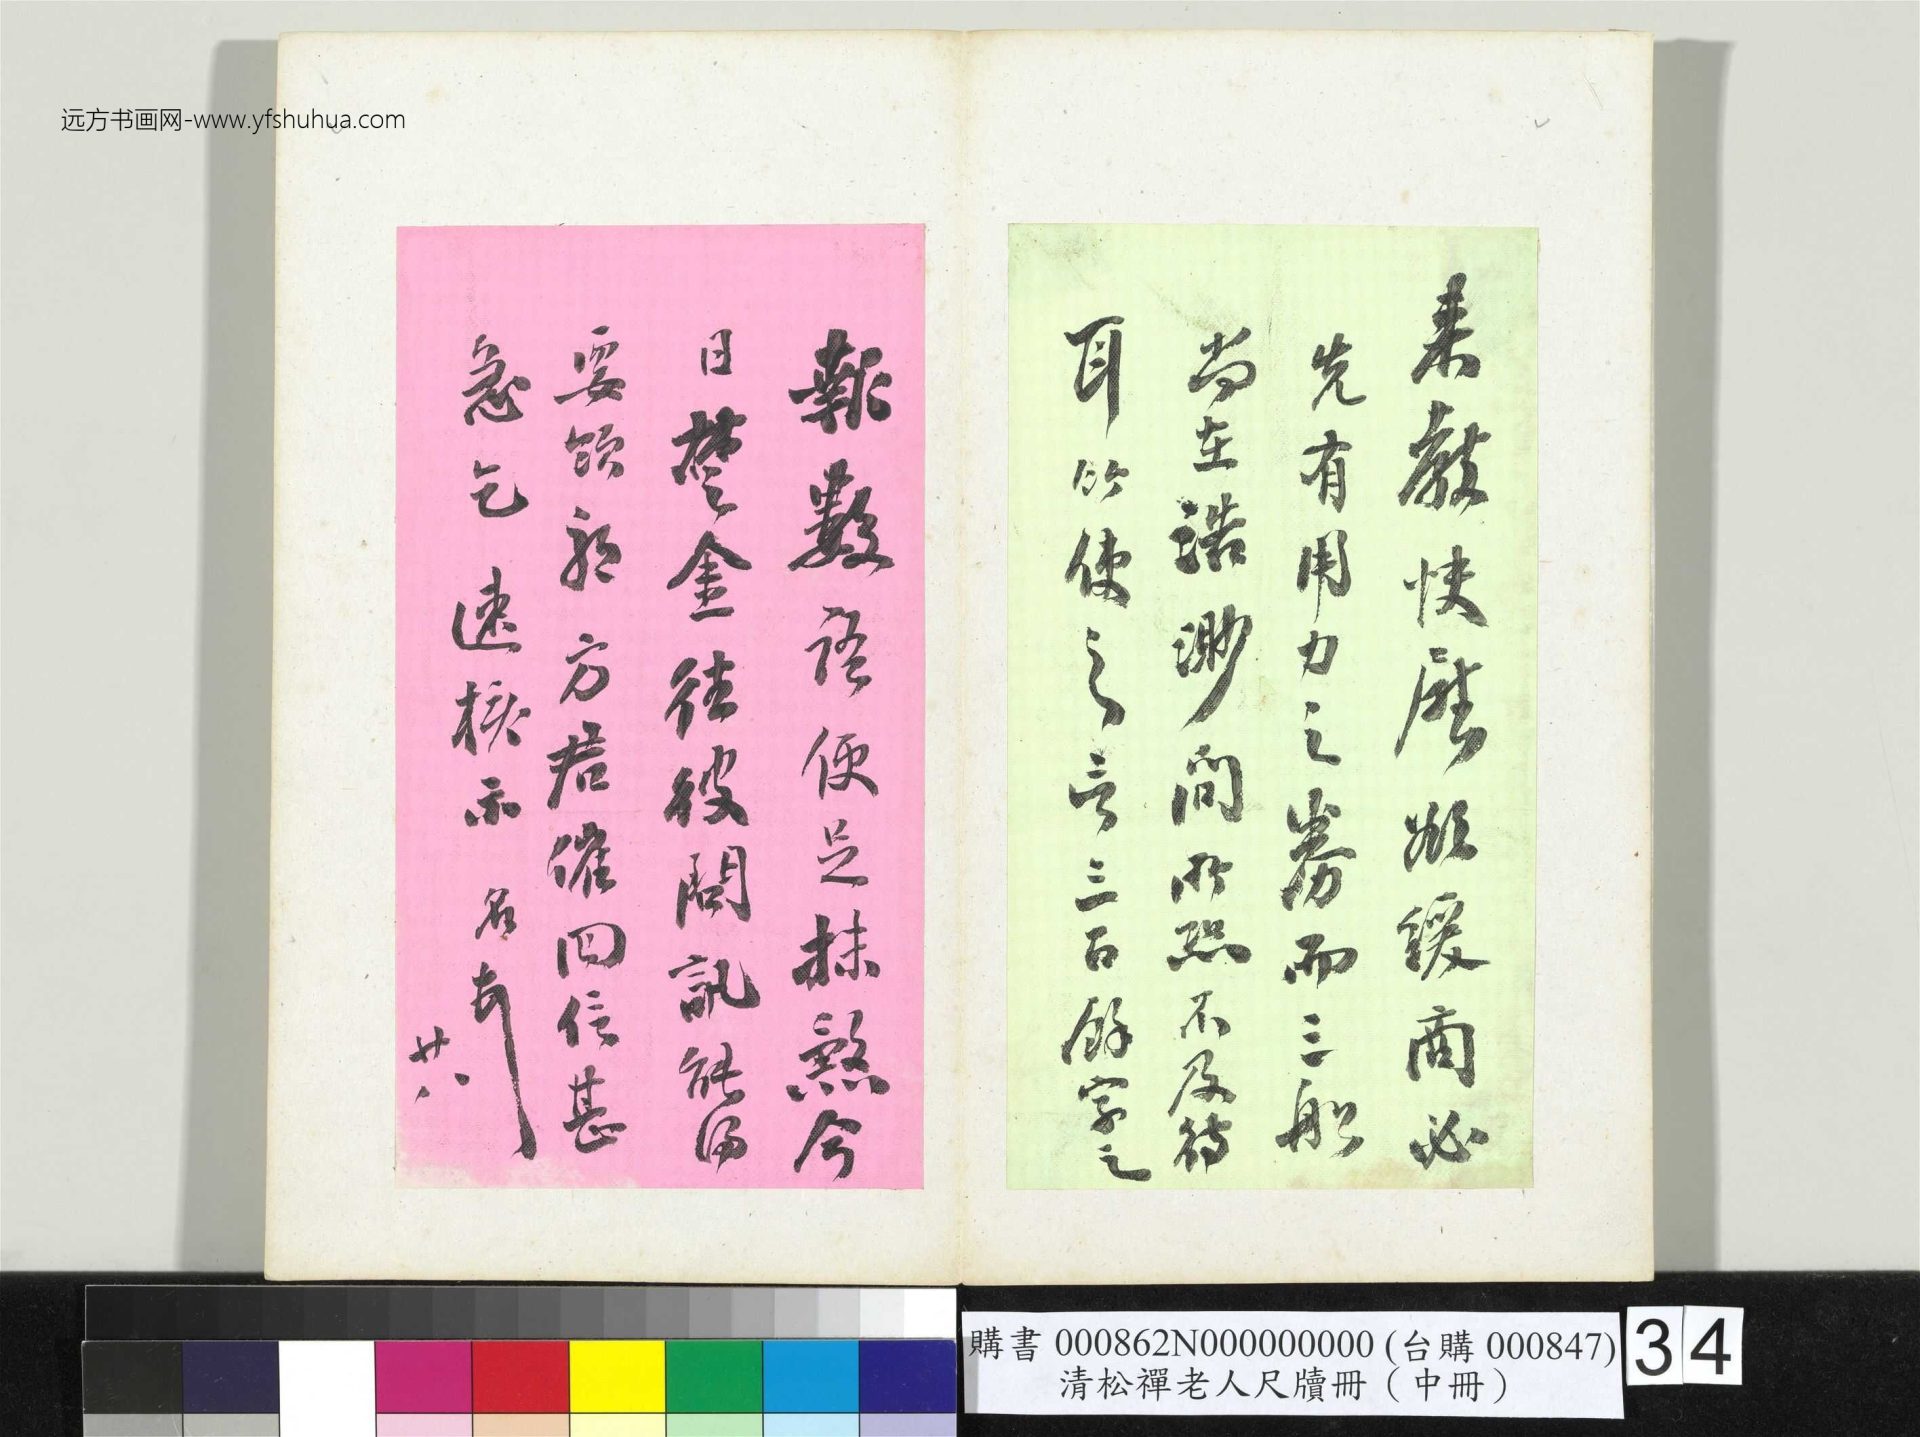 远方书画网-www.yfshuhua.com
來教快慰緩商必
先有用力之券而三船
尚在浩渺間所恐不及待
耳以使之言三百餘字之
報數語便足抹煞今
日楚金往彼問訊能得
要領耶方君催回信甚
急乞速核示 名
廿八
購書 000862N000000000 (台購 000847)
清松禪老人尺牘冊（中冊）
34